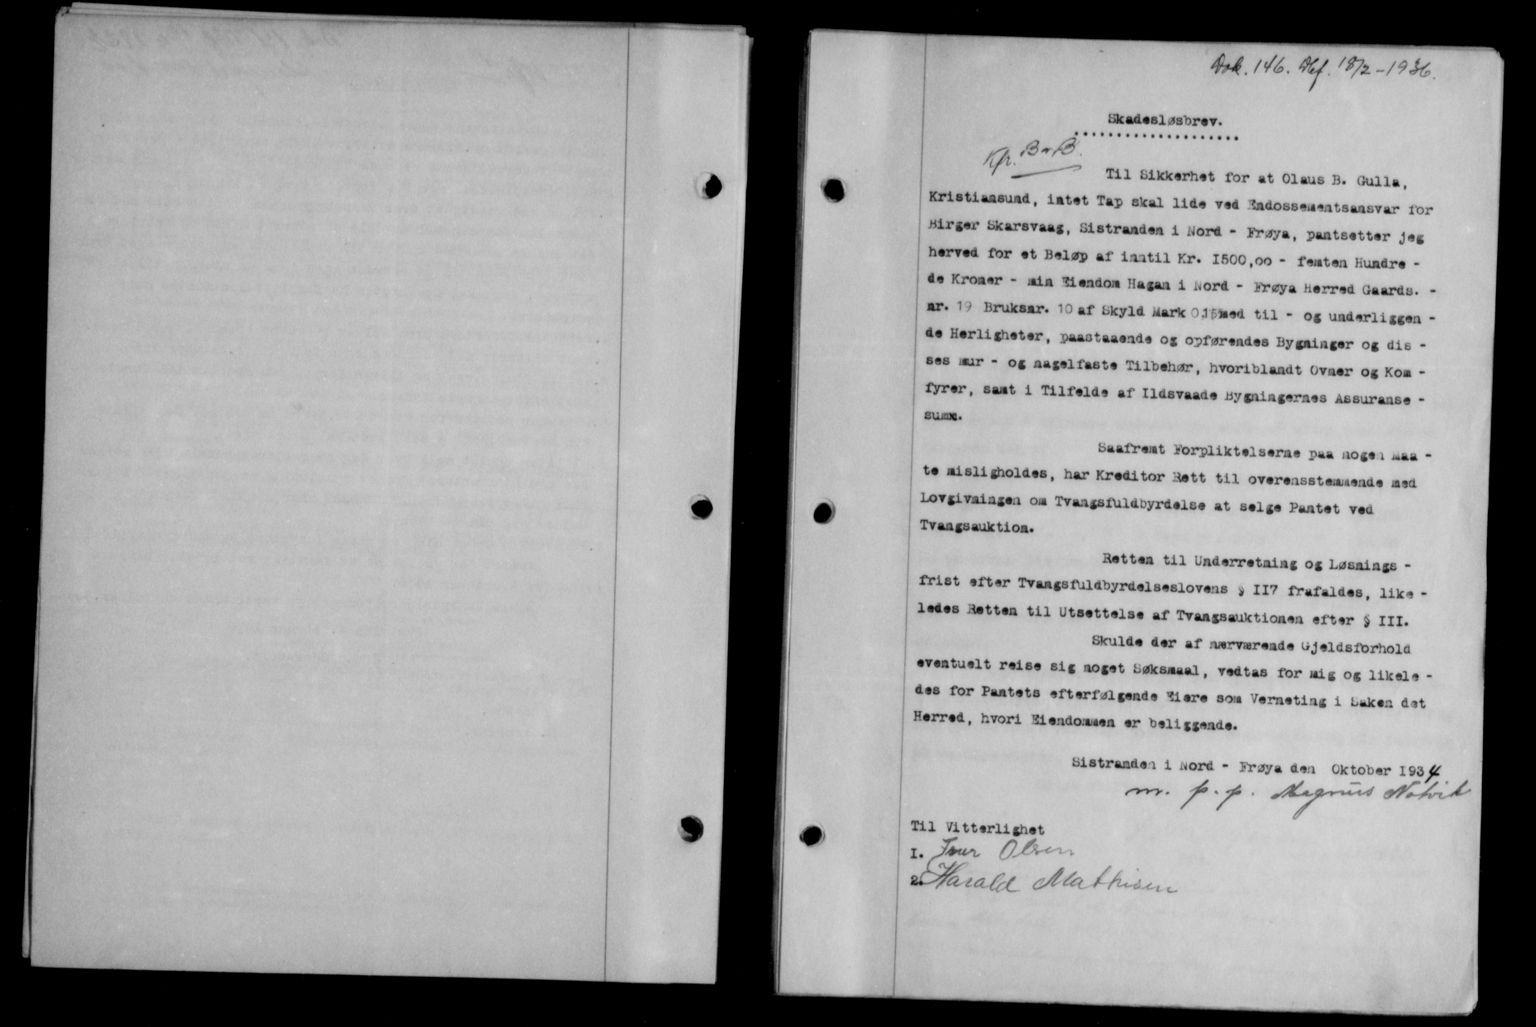 Dok. 146. Dbf. 18/2-1936.
Skadesløsbrev.
....................
Til Sikkerhet for at Olaus B. Gulla,
Kristiansund, intet Tap skal lide ved Endossementsansvar for
Birger Skarsvaag, Sistranden i Nord - Frøya, pantsetter jeg
herved for et Beløp af inntil Kr. I500,oo - femten Hundre -
de Kroner - min Eiendom Hagan i Nord - Frøya Herred Gaards. -
nr. 19 Bruksnr. 10 af Skyld Mark 0,15 med til - og underliggen -
de Herligheter, paastaaende og opførendes Bygninger og dis -
ses mur - og nagelfaste Tilbehør, hvoriblandt Ovner og Kom -
fyrer, samt i Tilfelde af Ildsvaade Bygningernes Assuranse -
summ.
Saafremt Forpliktelserne paa nogen Maa -
te misligholdes, har Kreditor Rett til overensstemmende med
Lovgivningen om Tvangsfuldbyrdelse at selge Pantet ved
Tvangsauktion.
Retten til Underretning og Løsnings -
frist efter Tvangsfuldbyrdelseslovens § II7 frafaldes, like -
ledes Retten til Utsettelse af Tvangsauktionen efter § III.
Skulde der af nærværende Gjeldsforhold
eventuelt reise sig noget Søksmaal, vedtas for mig og likele -
des for Pantets efterfølgende Eiere som Verneting i Saken det
Herred, hvori Eiendommen er beliggende.
Sistranden i Nord - Frøya den Oktober I934
m. p. p. Magnus Notvik
Til Vitterlighet
I. Olsen
2. Harald Mathisen